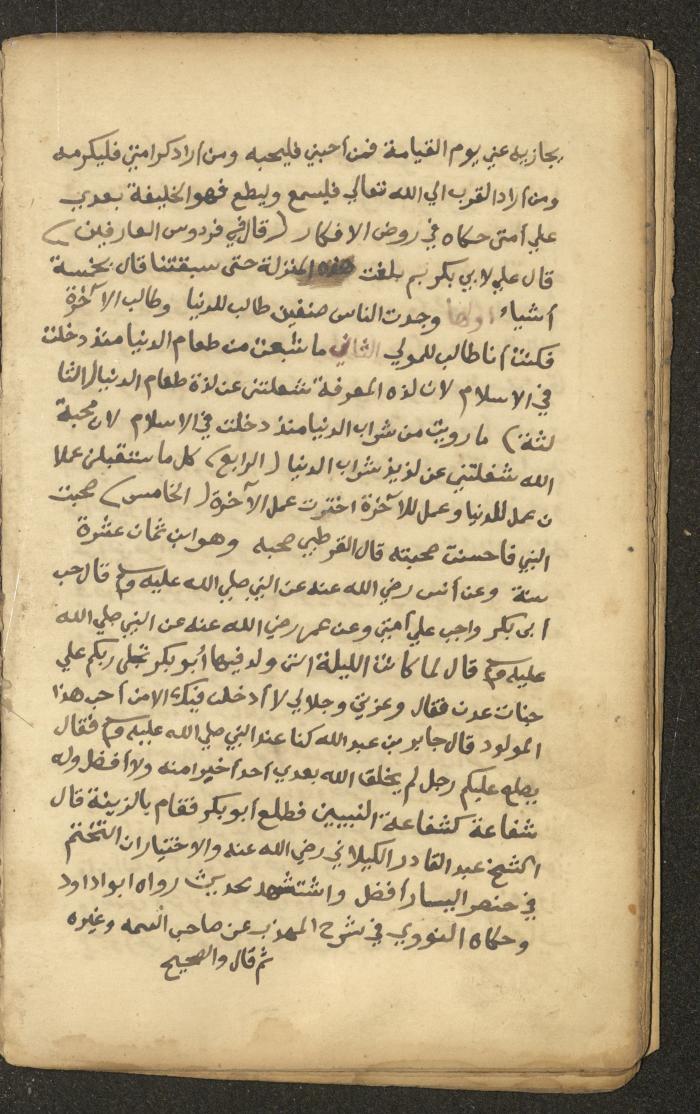 يجازيه عني يوم القيامة فمن احبني فليحبه ومن اراد كرامتي فليكرمه
ومن اراد القرب الي الله تعالي فليسمع وليطع فهو الخليفة بعدي
علي امتي حكاه في روض الافكار (وقال في فردوس العارفين)
قال علي لابي بكر بم بلغت هذه المنزلة حتى سبقتنا قال بخمسة
اشياء اولها وجدت الناس صنفين طالب للدنيا وطالب الآخرة
فكنت انا طالب للمولي الثاني ما شبعت من طعام الدنيا منذ دخلت
في الاسلام لان لذه المعرفة شغلتني عن لذة طعام الدنيا (الثا
لثة) ما رويت من شراب الدنيا منذ دخلت في الاسلام لان محبة
الله شغلتني عن لذيذ شراب الدنيا (الرابع) كل ما ستقبلن عملا
ن عمل للدنيا وعمل للآخرة اخترت عمل الآخرة (الخامس) صحبت
النبي فاحسنت صحبته قال القرطبي صحبه وهو ابن ثمان عشرة
سنة وعن انس رضي الله عنه عن النبي صلي الله عليه وسلم قال حب
ابي بكر واجب علي امتي وعن عمر رضي الله عنه عن النبي صلي الله
عليه وسلم قال لما كانت الليلة التي ولد فيها أبو بكر تجلى ربكم علي
جنات عدن فقال وعزتي وجلالي لا أدخلت فيك الا من أحب هذا
المولود قال جابر بن عبد الله كنا عند النبي صلي الله عليه وسلم فقال
يطلع عليكم رجل لم يخلق الله بعدي أحد أخير امنه ولا أفضل وله
شفاعة كشفاعة النبيين فطلع ابو بكر فقام بالزينة قال
الشيخ عبد القادر الكيلاني رضي الله عنه والاختيار ان التختم
في خنصر اليسار أفضل واشتشهد بحديث رواه ابو اداود
وحكاه النووي في شرح المهذب عن صاحب وغيره
ثم قال والصحيح